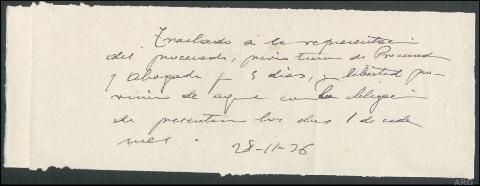 Traslado á la representación
del procesado, previo turno de Procurador
y Abogado p 5 dias, y libertad pro-
visión de aquel con la obligación
de presentarse los dias 1 de cada
mes.
28-11-36
ARG